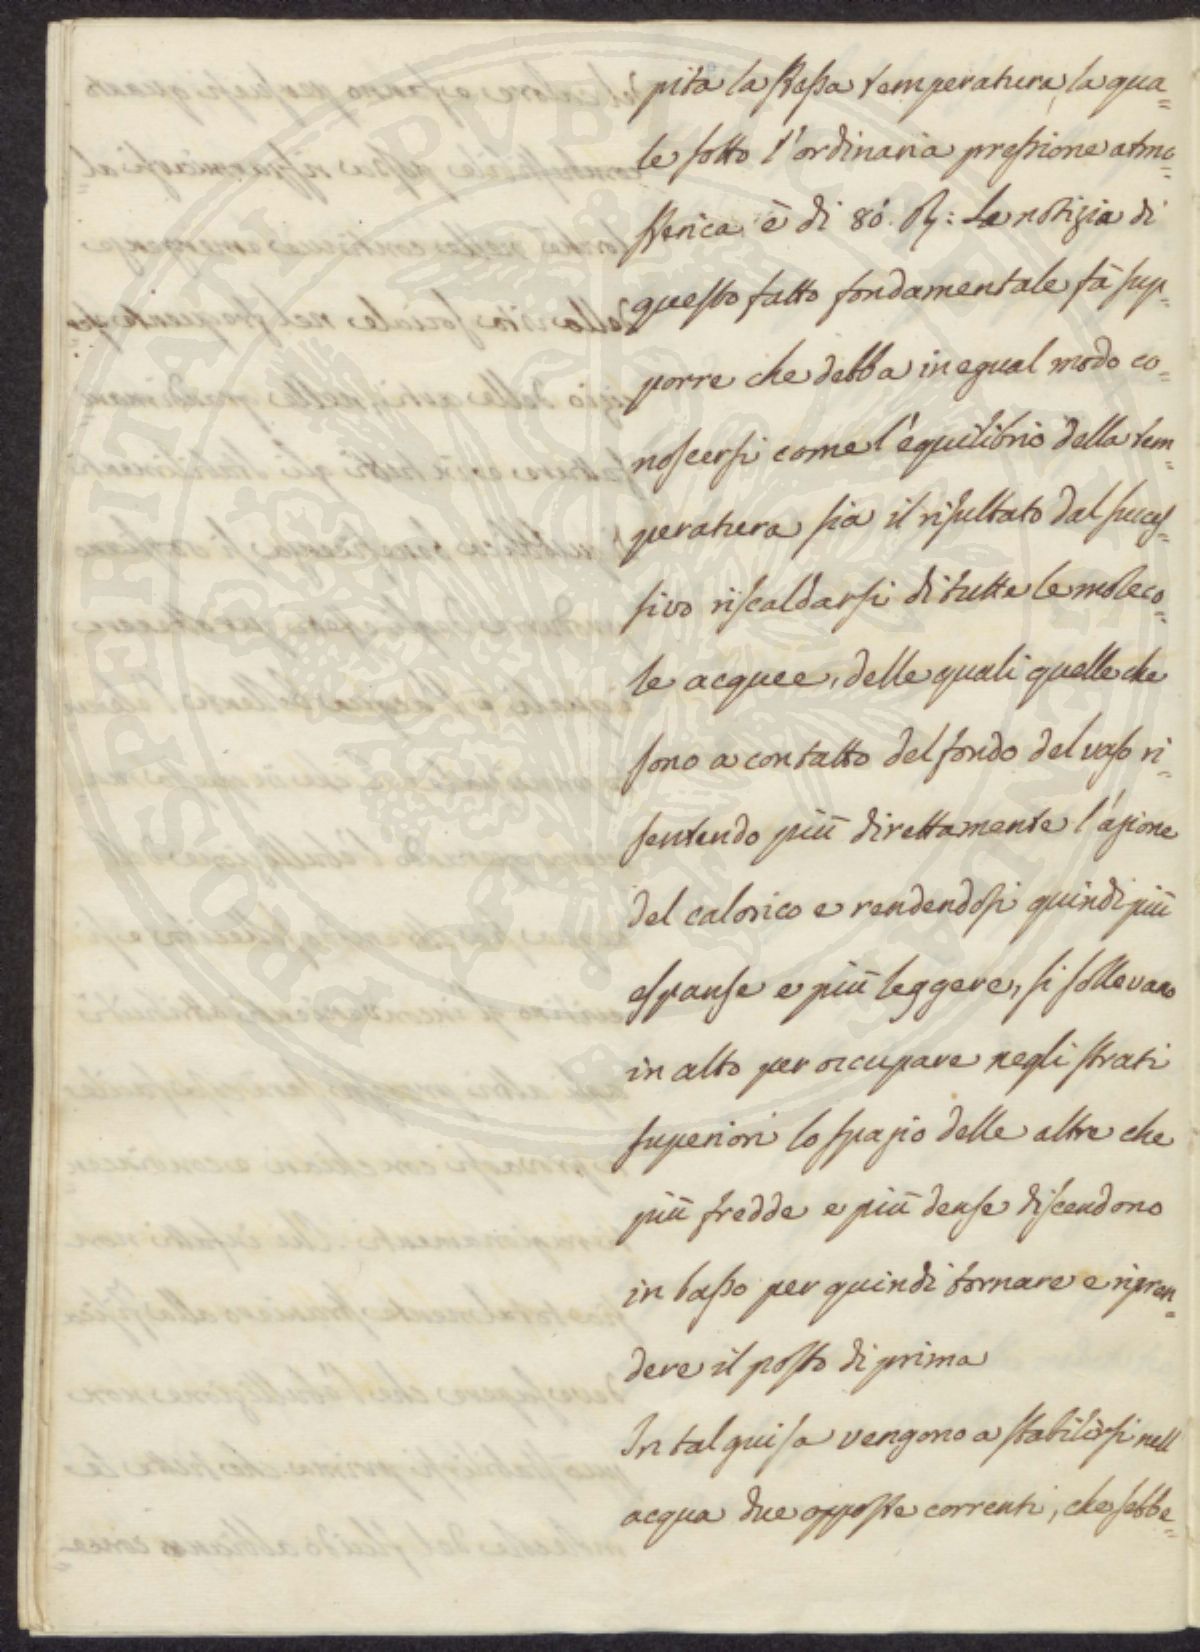 pita la stessa temperatura, la qua=
le sotto l'ordinaria pressione atmo=
sferica è di 80. R: La notizia di
questo fatto fondamentale fà sup=
porre che debba in egual modo co=
noscersi come l'equilibrio della tem=
peratura sia il risultato dal succes=
sivo riscaldarsi di tutte le moleco=
le acquee, delle quali quelle che
sono a contatto del fondo del vaso ri=
sentendo più direttamente l'azione
del calorico e rendendosi quindi più
espanse e più leggere, si sollevano
in alto per occupare negli strati
superiori lo spazio delle altre che
più fredde e più dense discendono
in basso per quindi tornare e ripren=
dere il posto di prima
In tal guisa vengono a stabilirsi nell
acqua due opposte correnti, che sebbe=